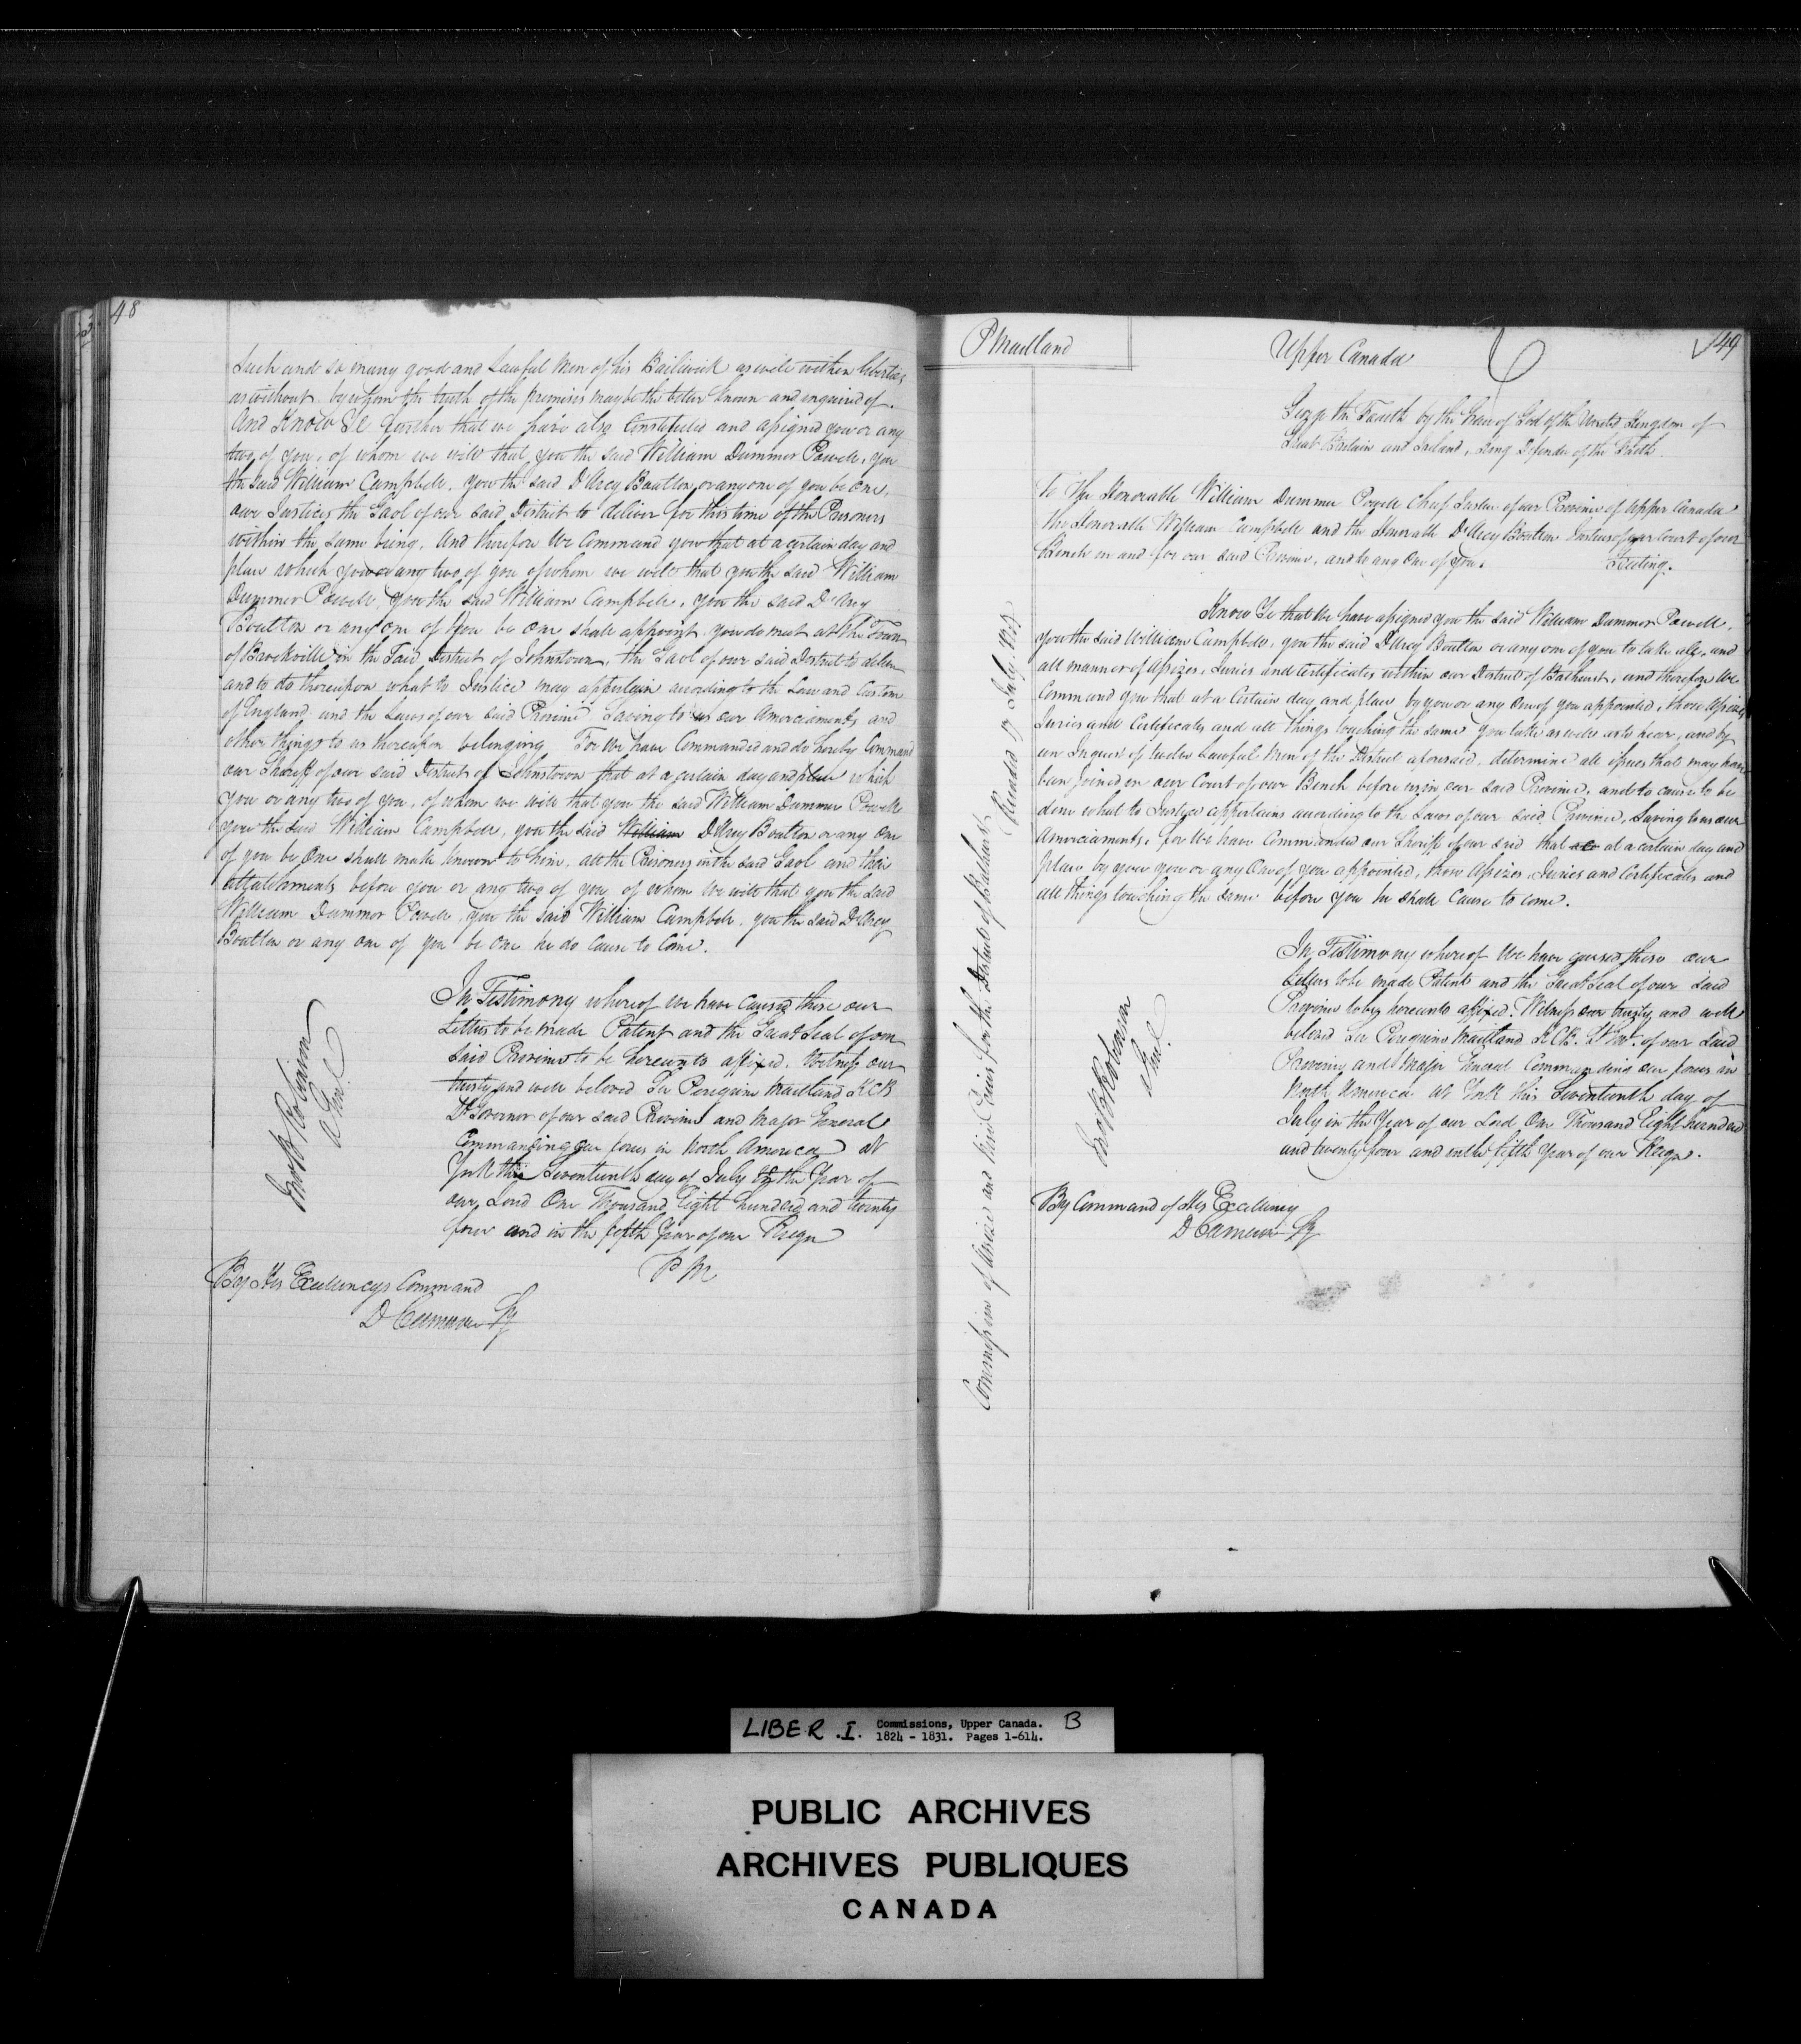 48
Such and so many good and Lawful Men of his Bailiwick as well within liberties
as without by whom the truth of the premises may be the better known and enquired of.
And Know Ye further that we have also Constituted and assigned you or any
two of you, of whom we will that you the said William Dummer Powell, you
the said William Campbell, you the said D'Arcy Boulton or any one of you be One,
our Justices the Gaol of our said District to deliver for this time of the Prisoners
within the same being. And therefore We Command you that at a certain day and
place which you or any two of you of whom we will that you the said William
Dummer Powell, you the said William Campbell, you the said D'Arcy
Boulton or any One of you be One shall appoint you do meet at the Town
of Brockville in the Said District of Johnstown, the Gaol of our said District to deliver
and to do thereupon what to Justice may appertain according to the Law and Custom
of England and the Laws of our said Province Saving to us our Amerciaments and
other things to us thereupon belonging For We have Commanded and do hereby Command
our Sheriff of our said District of Johnstown that at a certain day and place which
you or any two of you, of whom we will that you the said William Dummer Powell
you the said William Campbell, you the said William D'Arcy Boulton or any One
of you be One shall make known to him, all the Prisoners in the said Gaol and their
attachments before you or any two of you of whom We will that you the said
William Dummer Powell, you the said William Campbell, you the said D'Arcy
Boulton or any one of you be One he do Cause to Come.
In Testimony whereof we have caused these our
Letters to be made Patent and the Great Seal of our
said Province to be hereunto affixed. Witness our
trusty and well beloved Sir Peregrine Maitland KCB
Lt Governor of our said Province and Major General
Commanding our forces in North America at
York this Seventeenth day of July of the Year of
our Lord One Thousand Eight hundred and twenty
four and in the fifth Year of our Reign
P M
By His Excellencys Command
D Cameron Sy
P Maitland
Upper Canada
149
George the Fourth by the Grace of God of the United Kingdom of
Great Britain and Ireland, King Defender of the Faith.
To The Honorable William Dummer Powell Chief Justice of our Province of Upper Canada
the Honorable William Campbell and the Honorable D'Arcy Boulton Justices of our Court of our
Bench in and for our said Province, and to any One of you. Greeting.
Know Ye that We have assigned you the said William Dummer Powell,
you the said William Campbell, you the said D'Arcy Boulton or any one of you to take all, and
all manner of Assizes, Juries and Certificates within our District of Bathurst, and therefore We
Command you that at a Certain day and place by you or any One of you appointed, those Assizes
Juries and Certificates and all things touching the same you take as well as to hear, and by
an Inquest of twelve Lawful Men of the District aforesaid, determine all issues that may have
been joined in our Court of our Bench before us in our said Province, and to cause to be
done what to Justice appertains according to the Laws of our said Province, Saving to us our
Amerciaments, for We have Commanded our Sheriff of our said that at a certain day and
place by you or any One of you appointed, those Assizes, Juries and Certificates and
all things touching the same before you he shall Cause to come.
In Testimony whereof We have caused these our
Letters to be made Patent and the Great Seal of our said
Province to be hereunto affixed. Witness our trusty and well
beloved Sir Peregrine Maitland KCB. Lt Govr. of our Said
Province and Major General Commanding our forces in
North America at York this Seventeenth day of
July in the Year of our Lord One Thousand Eight hundred
and twenty four and in the fifth Year of our Reign.
By Command of His Excellency
D Cameron Sy
Commission of Assize and Nisi Prius for the District of Bathurst
Recorded 19 July
LIBER .I. Commissions, Upper Canada. B
1824 - 1831. Pages 1-614.
PUBLIC ARCHIVES
ARCHIVES PUBLIQUES
CANADA